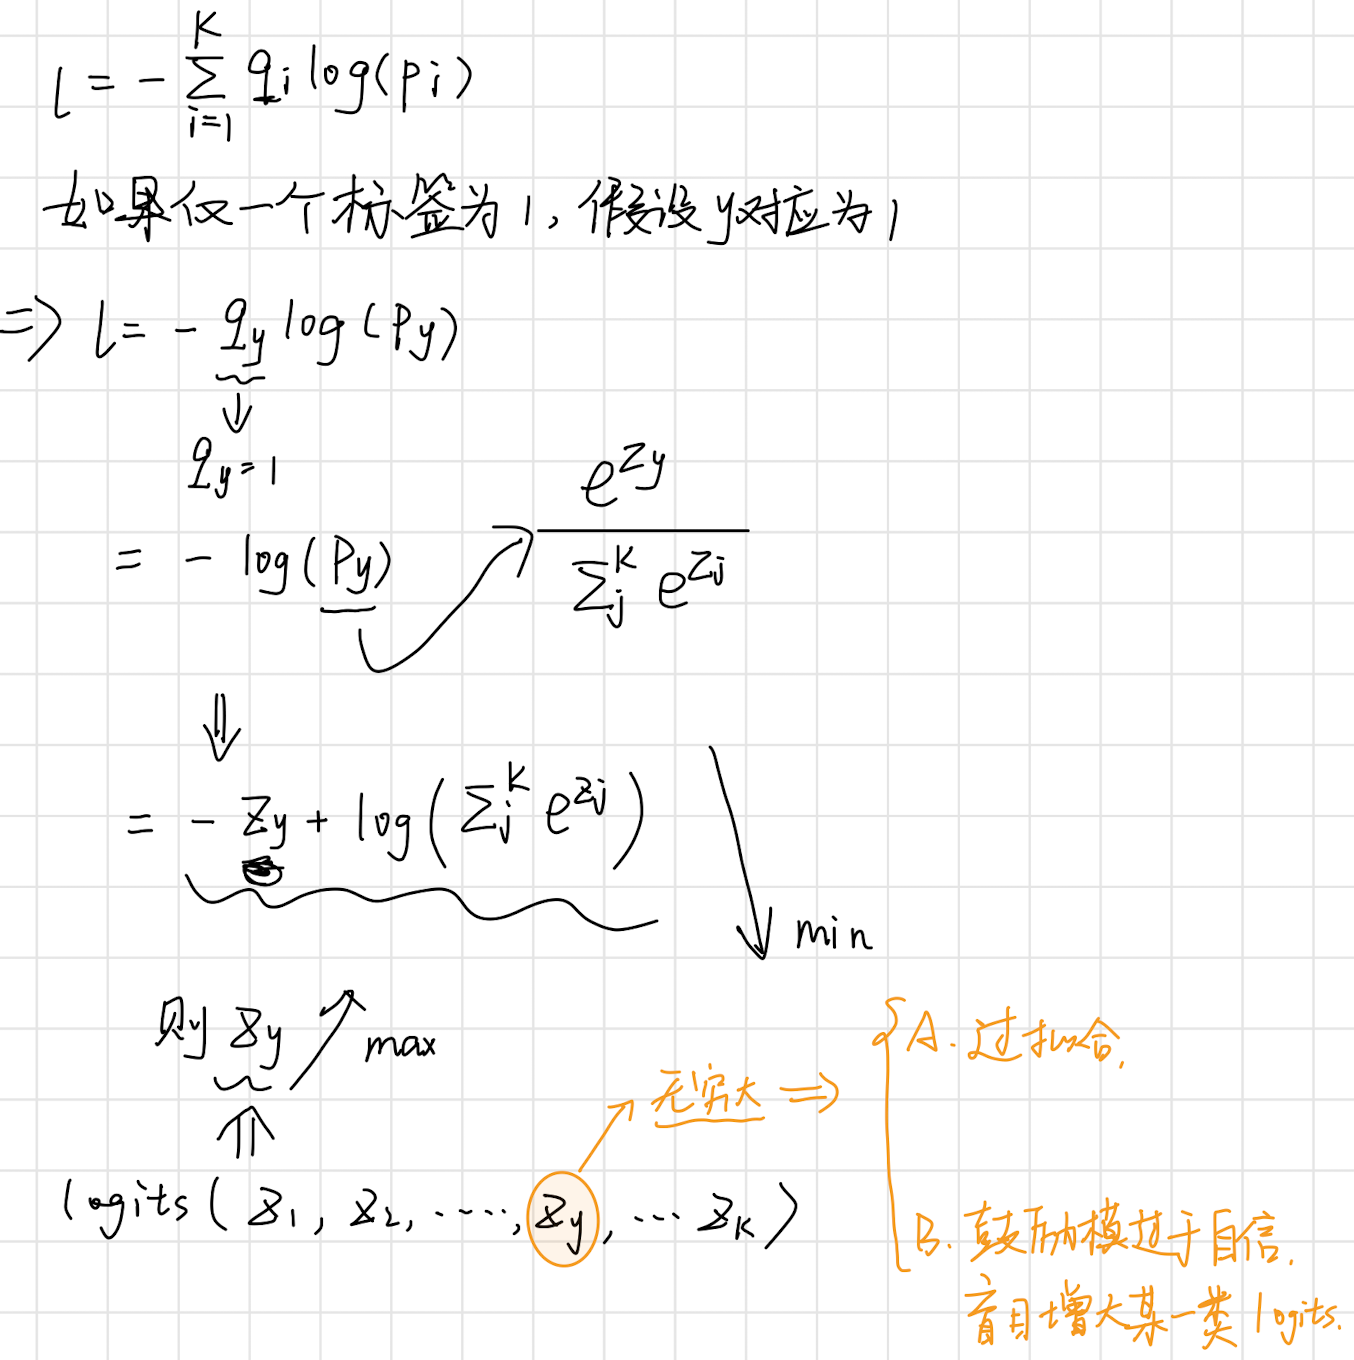 l = - ∑_{i=1}^{K} q_i log(p_i)
如果仅一个标签为1, 假设y对应为1
=> l = - q_y log(P_y)
↓
q_y = 1
= - log(P_y) → e^{z_y} / ∑_j^K e^{z_j}
⇓
= - z_y + log(∑_j^K e^{z_j}) ↘ min
则 z_y ↗ max
⇑
logits(z_1, z_2, ....., z_y, ... z_K)
→ 无穷大 =>
A. 过拟合.
B. 鼓励模过于自信.
盲目增大某一类 logits.